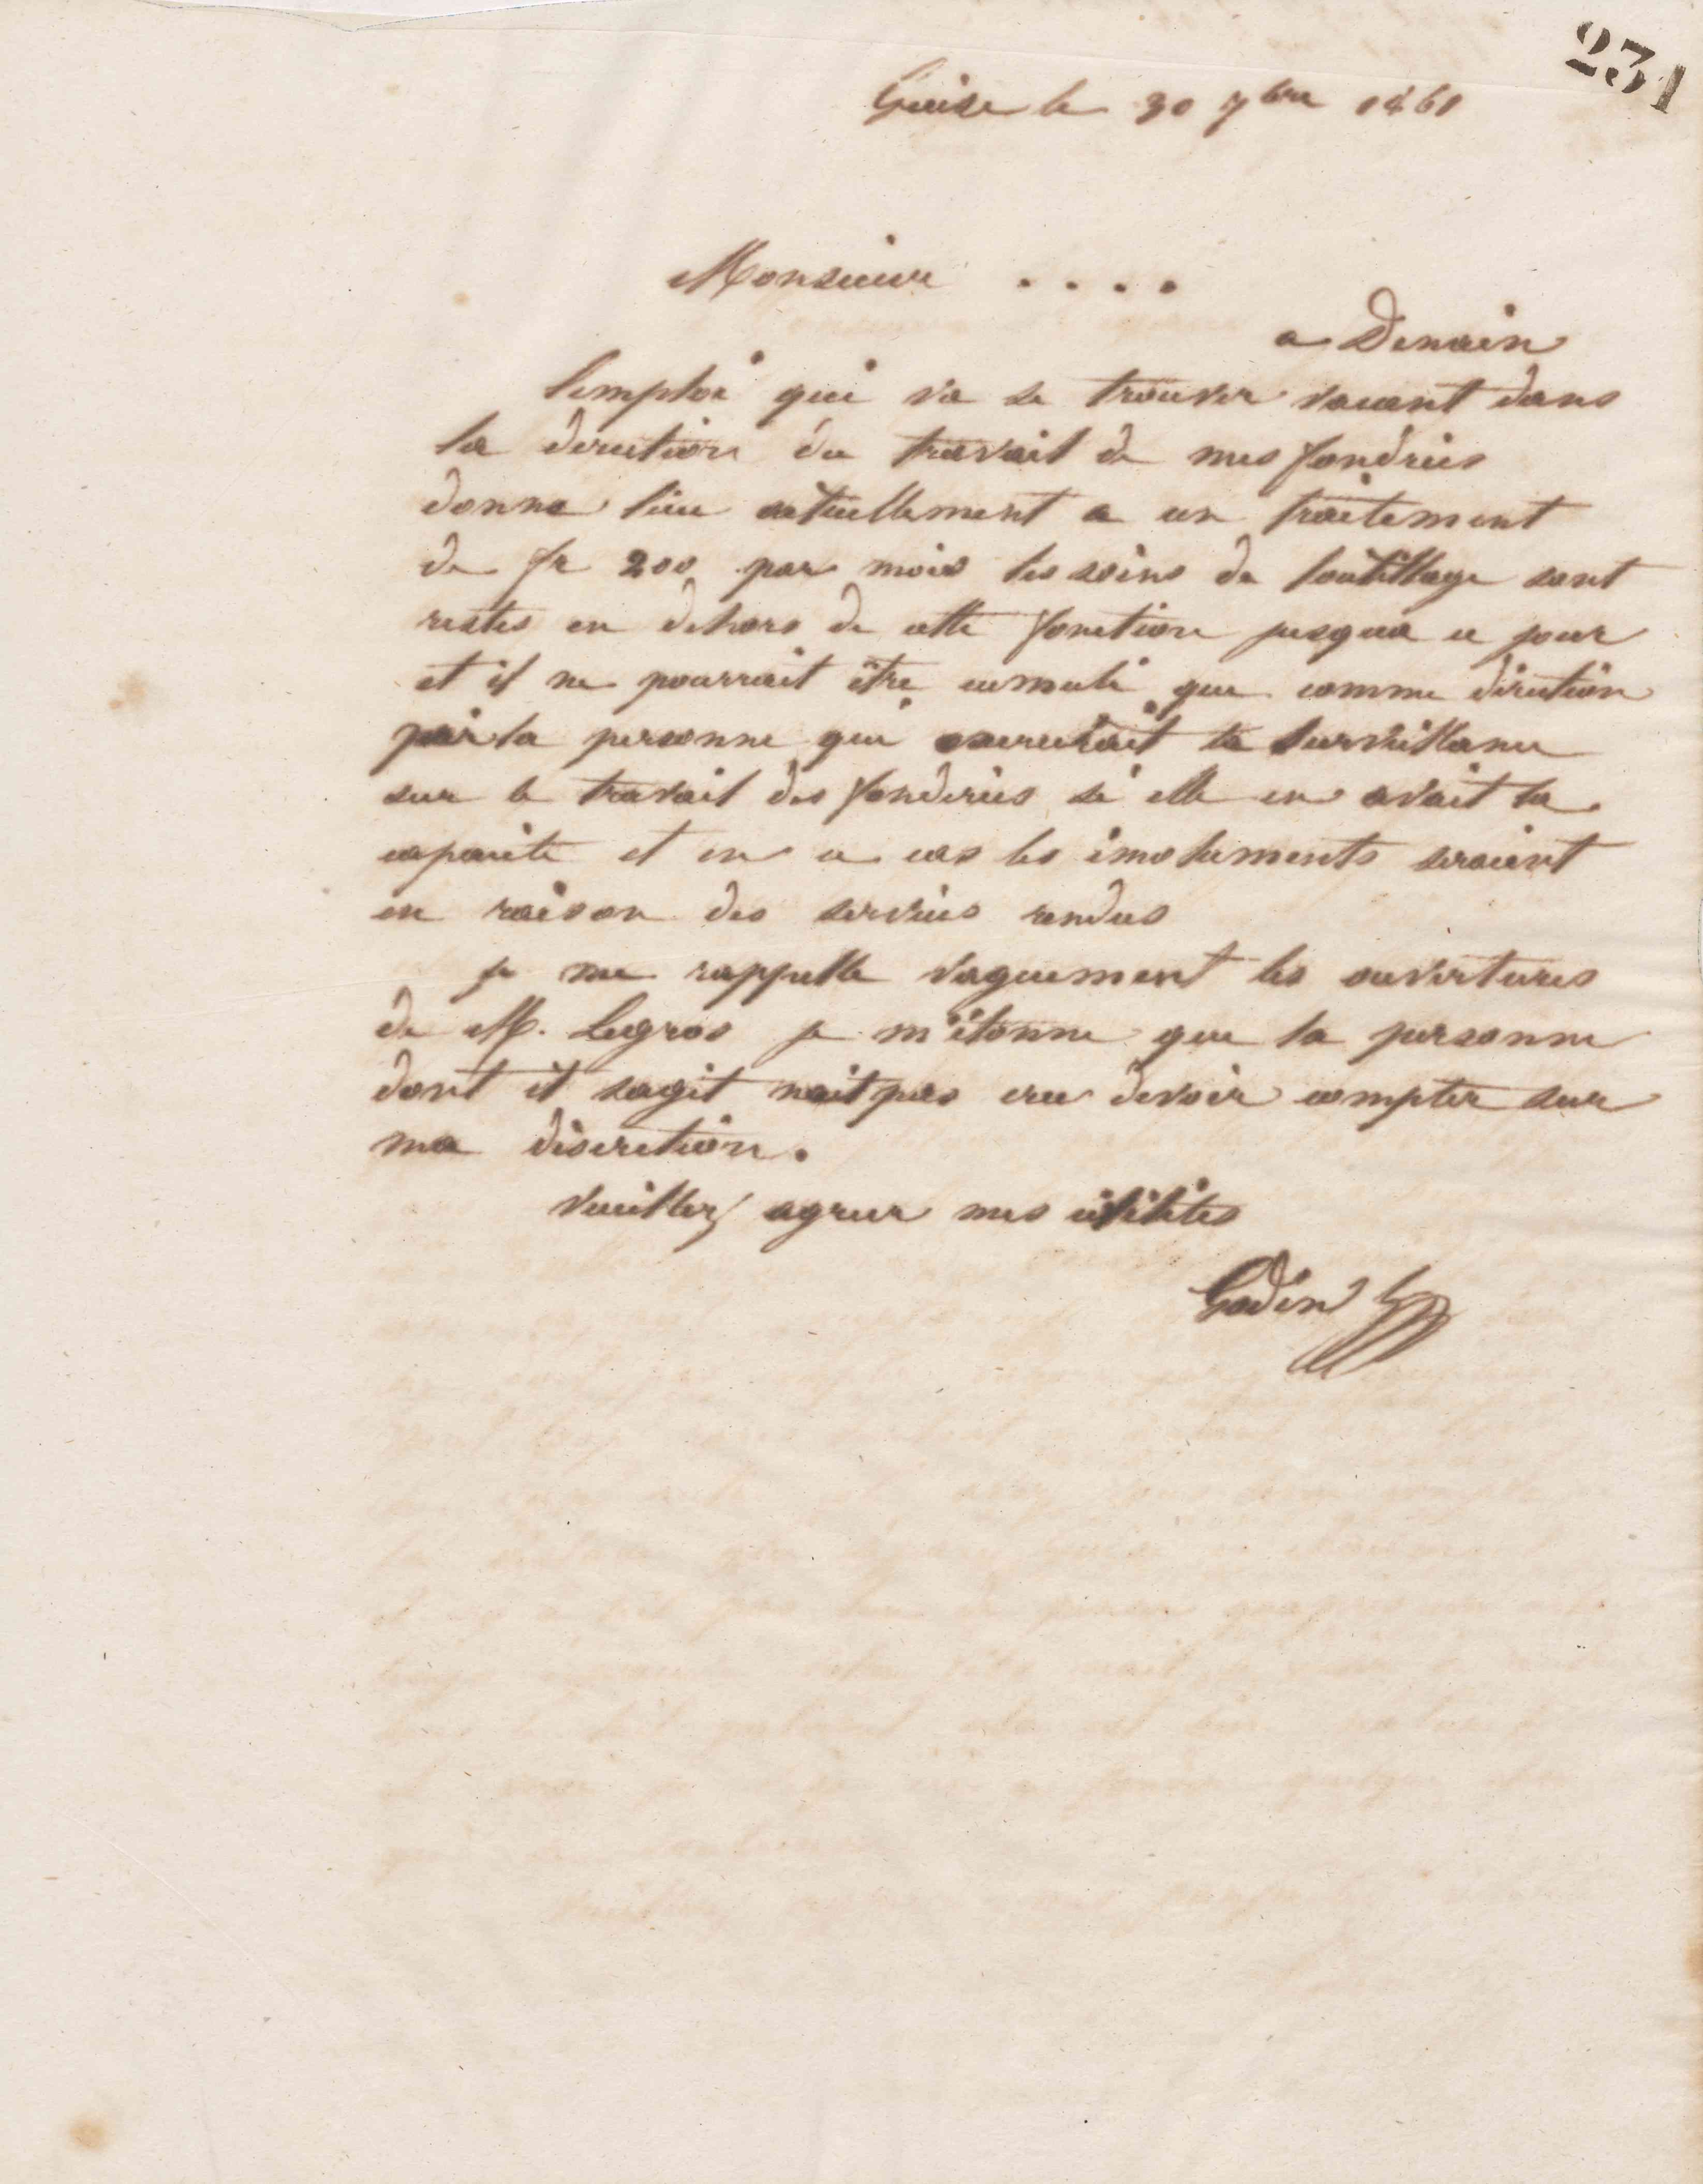 231
Guise le 30 7bre 1861
Monsieur . . . .
a Denain
lemploi qui va se trouver vacant dans
la direction du travail de mes fondries
donne lieu actuellement a un traitement
de fr 200 par mois les soins de loutillage sont
restes en dehors de cette fonction jusqua ce jour
et il ne pourrait être cumulé que comme direction
par la personne qui exercerait la surveillance
sur le travail des fonderies si elle en avait la
capacité et en ce cas les émoluments seraient
en raison des services rendus
je me rappelle vaguement les ouvertures
de M. Legros je m'étonne que la personne
dont il sagit nait pas cru devoir compter sur
ma discretion.
Veuillez agreer mes civilités
Godin